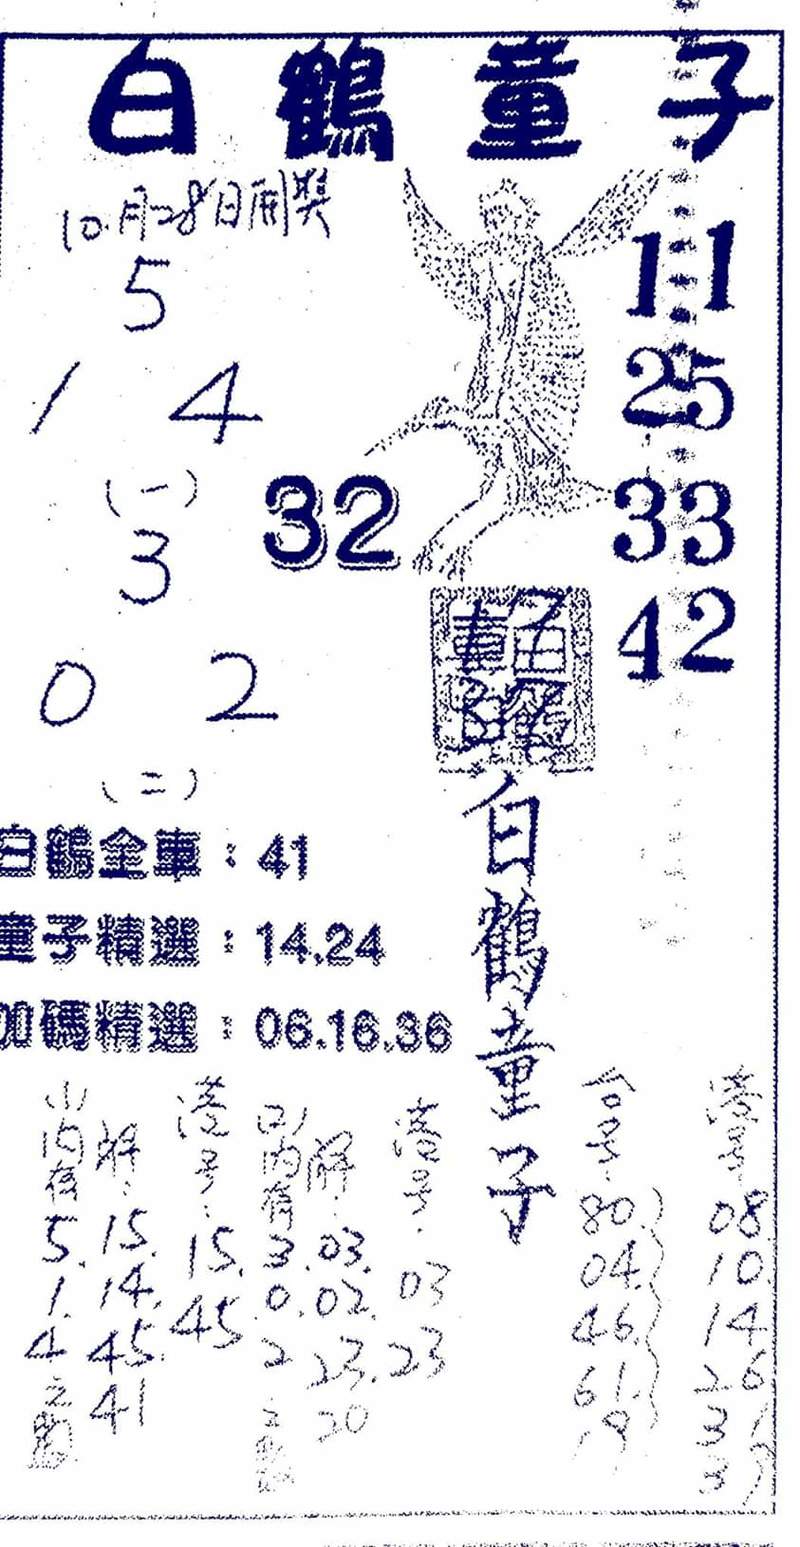 白鶴童子
10月28日開獎
5
1 4
(一)
3
0 2
(二)
32
11
25
33
42
白鶴童子
白鶴全車：41
童子精選：14.24
加碼精選：06.16.36
(1)內有 5. 1. 4 之
解：15. 14. 45. 41
港号：15. 45
(2)內有 3. 0. 2 之
解：03. 02. 23. 20
港号：03 23
合号：80. 04. 46. 61. 19
港号 08 10. 14 26 31 37